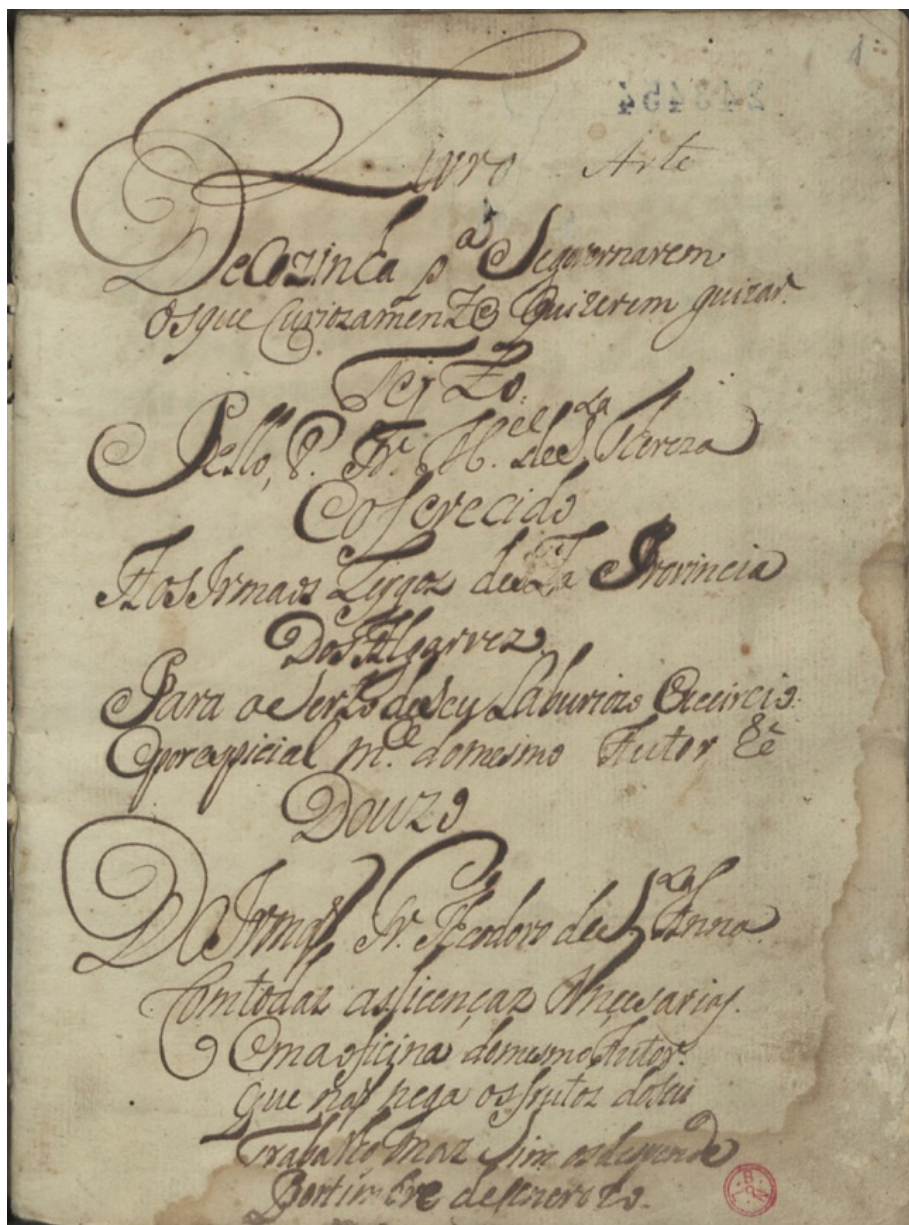 1
243454
Livro Arte
De Cozinha pª Se governarem
Os que Curiozamente Quizerem guizar.
Feito.
Pello, P. Fr. M.el de S.ta Thereza
E oferecido
Aos Irmaos Leygos desta Provincia
Dos Algarvez
Para o de seu Laburiozo
E por espicial m.ce do mesmo Autor
Do uzo
Do Irmaõ Fr. Theodoro de S.ta Anna
Com todas as licenças Necesarias.
Em a oficina do mesmo Autor.
Que naõ nega os frutos do seu
Trabalho mas Sim os despende